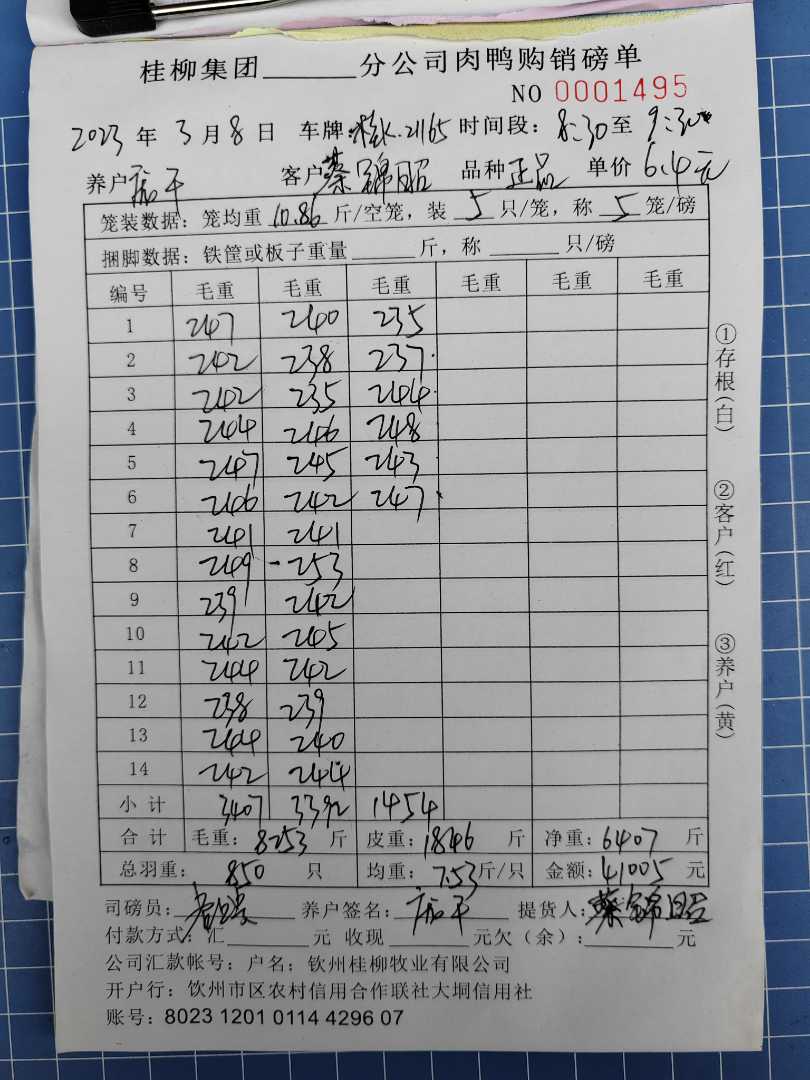 桂柳集团______分公司肉鸭购销磅单
NO 0001495
2023 年 3 月 8 日 车牌:桂K.21165 时间段: 8:30 至 9:30
养户 客户 蔡锦昭 品种 正品 单价 6.4元
笼装数据: 笼均重 10.86 斤/空笼, 装 5 只/笼, 称 5 笼/磅
捆脚数据: 铁筐或板子重量______斤, 称______只/磅
编号 毛重 毛重 毛重 毛重 毛重 毛重
1 247 240 235
2 242 238 237
3 242 235 244
4 244 246 248
5 247 245 243
6 246 242 247
7 241 241
8 249 253
9 239 242
10 242 245
11 244 242
12 238 239
13 244 240
14 242 244
小计 3407 3392 1454
合计 毛重: 8253 斤 皮重: 1846 斤 净重: 6407 斤
总羽重: 850 只 均重: 7.53斤/只 金额: 41005 元
司磅员: 养户签名: 提货人: 蔡锦昭
付款方式: 汇______元 收现______元欠(余):______元
公司汇款帐号: 户名: 钦州桂柳牧业有限公司
开户行: 饮州市区农村信用合作联社大垌信用社
账号: 8023 1201 0114 4296 07
①存根(白)
②客户(红)
③养户(黄)